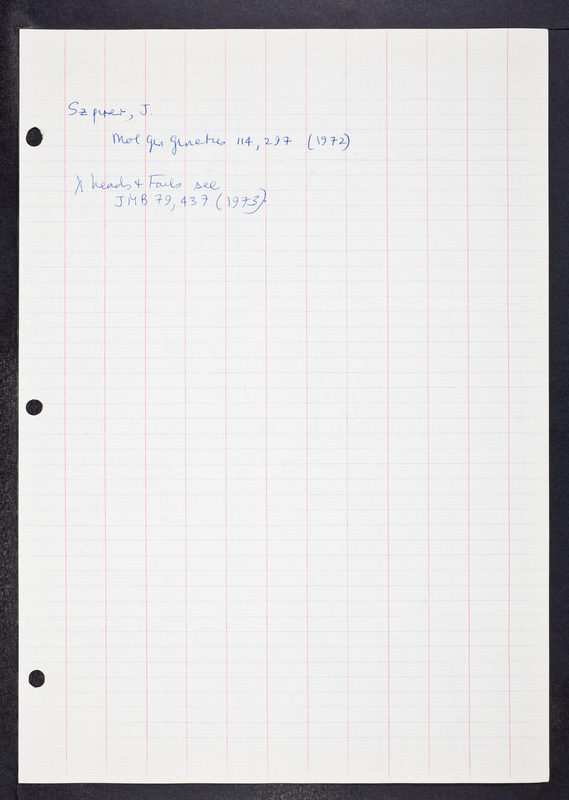 Szpirer, J.
Mol Gen Genetics 114, 297 (1972)
λ heads + Tails see
JMB 79, 437 (1973)